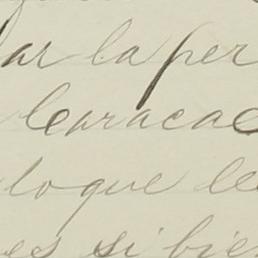 ar la per
Caracac
loque le
es si bie